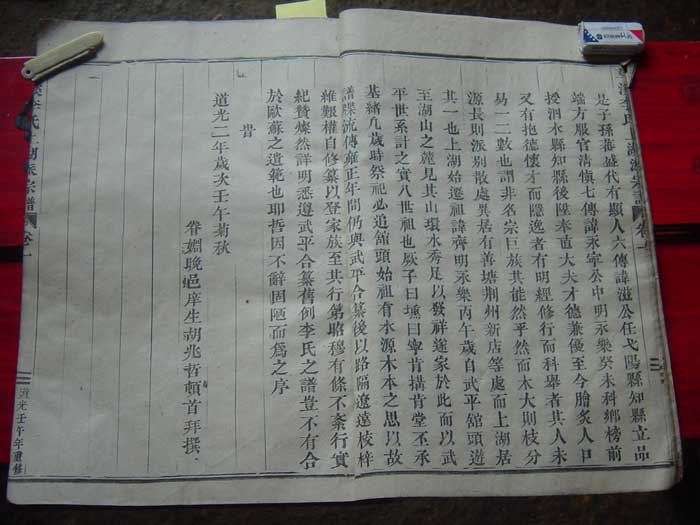 是子孫蕃盛代有顯人六傳諱滋公任弋陽縣知縣立品
端方服官清慎七傳諱永寧公中明永樂癸未科鄉榜前
授泗水縣知縣後陞奉直大夫才德兼優至今膾炙人口
又有抱德懷才而隱逸者有明經修行而科舉者其人未
易一二數也謂非名宗巨族其能然乎然而木大則枝分
源長則派別散處異居有善塘荆州新店等處而上湖居
其一也上湖始遷祖諱齊明永樂丙午歲自武平舘頭遊
至湖山之麓見其山環水秀足以發祥遂家於此而以武
平世系計之實八世祖也厥子曰壎曰寧肯搆肯堂丕承
基緒凡歲時祭祀必追舘頭始祖有水源木本之思以故
譜牒流傳雍正年間仍與武平合纂後以路隔遼遠梭梓
維艱權自修纂以登家族至共行第昭穆有條不紊行實
紀贊燦然詳明悉遵武平合纂舊例李氏之譜豈不有合
於歐蘇之遺範也耶哲因不辭固陋而為之序
旹
道光二年歲次壬午菊秋
眷嫺晚邑庠生胡兆哲頓首拜撰
李氏上湖派宗譜
卷一
道光壬午年重修